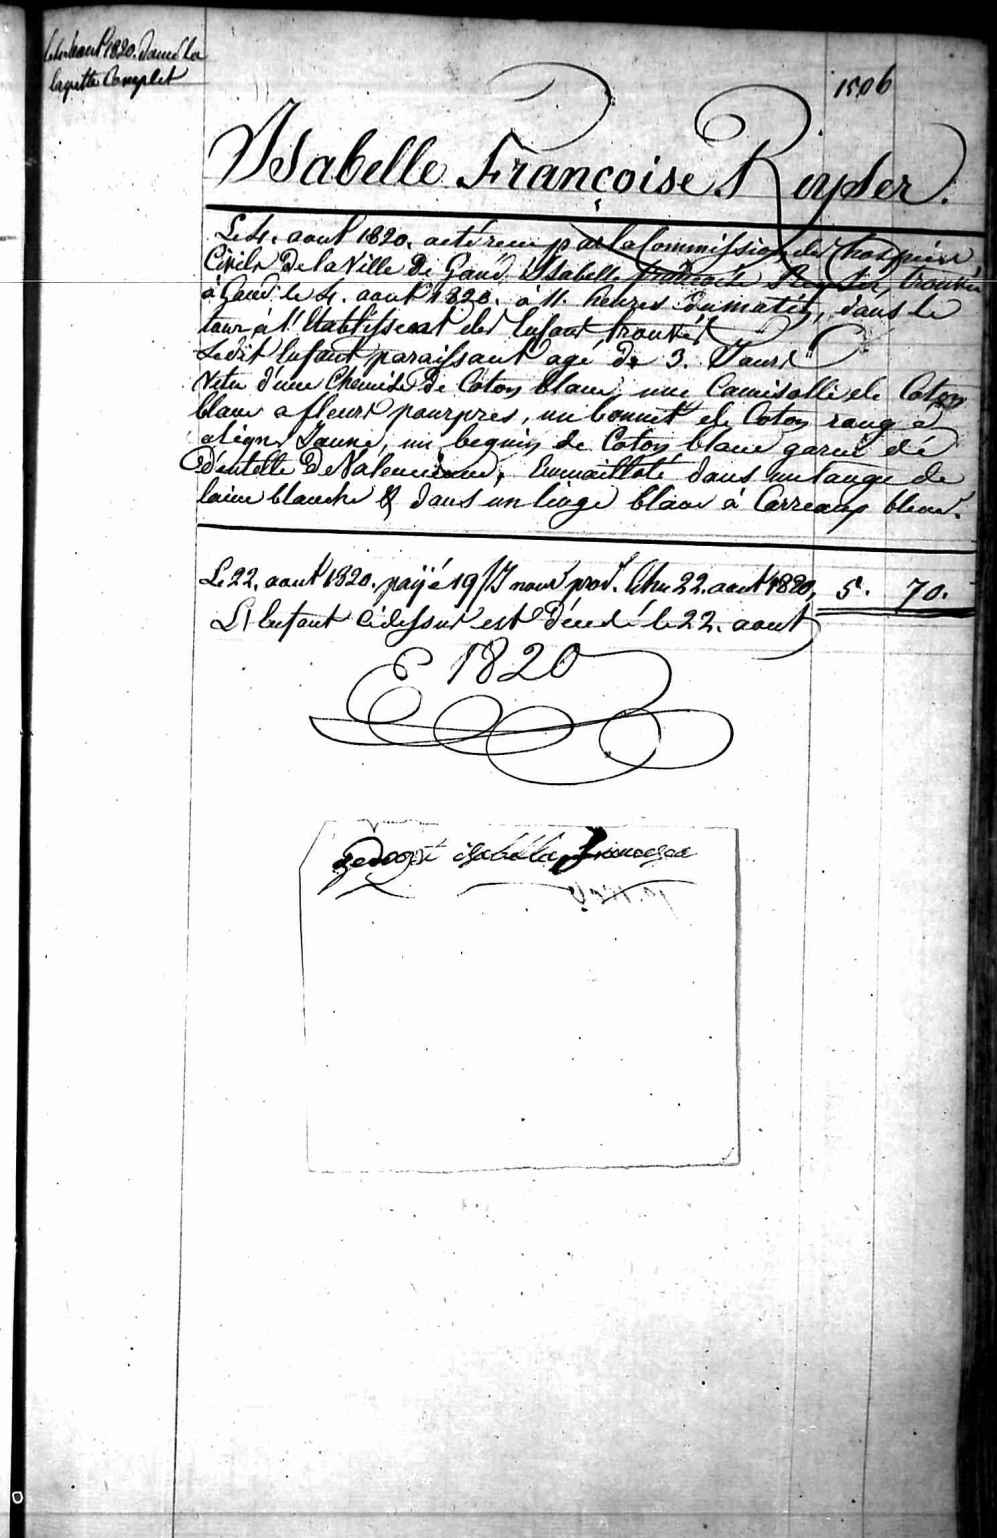 Le 4 aout 1820. donné la
layette Complet
1506
Isabelle Françoise Ruyser.
Le 4. aout 1820. a été recu par la Commission des hospices
Civils De la Ville De Gand, Isabelle françoise Ruyser, trouvée
à Gand le 4. aout 1820. à 11. heures du matin, dans le
tour à l'Etablissemt des Enfans trouvés
Ledit Enfant paraissant agé de 3. Jours
Vetu d'une Chemise De Coton blanc, une Camisolle de Coton
blanc a fleurs pourpres, un bonnet de Coton rouge à
a lignes Jaune, un beguin de Coton blanc garni de
dentelle De Valencienne, Emmailloté dans un lange de
laine blanche & dans un linge blanc à Carreaux bleus.
Le 22. aout 1820. payé 19/J nour prov. Echu 22. aout 1820, 5. 70.
L'Enfant cidessus est Décedé le 22. aout
1820
gedoopt isabella francisca